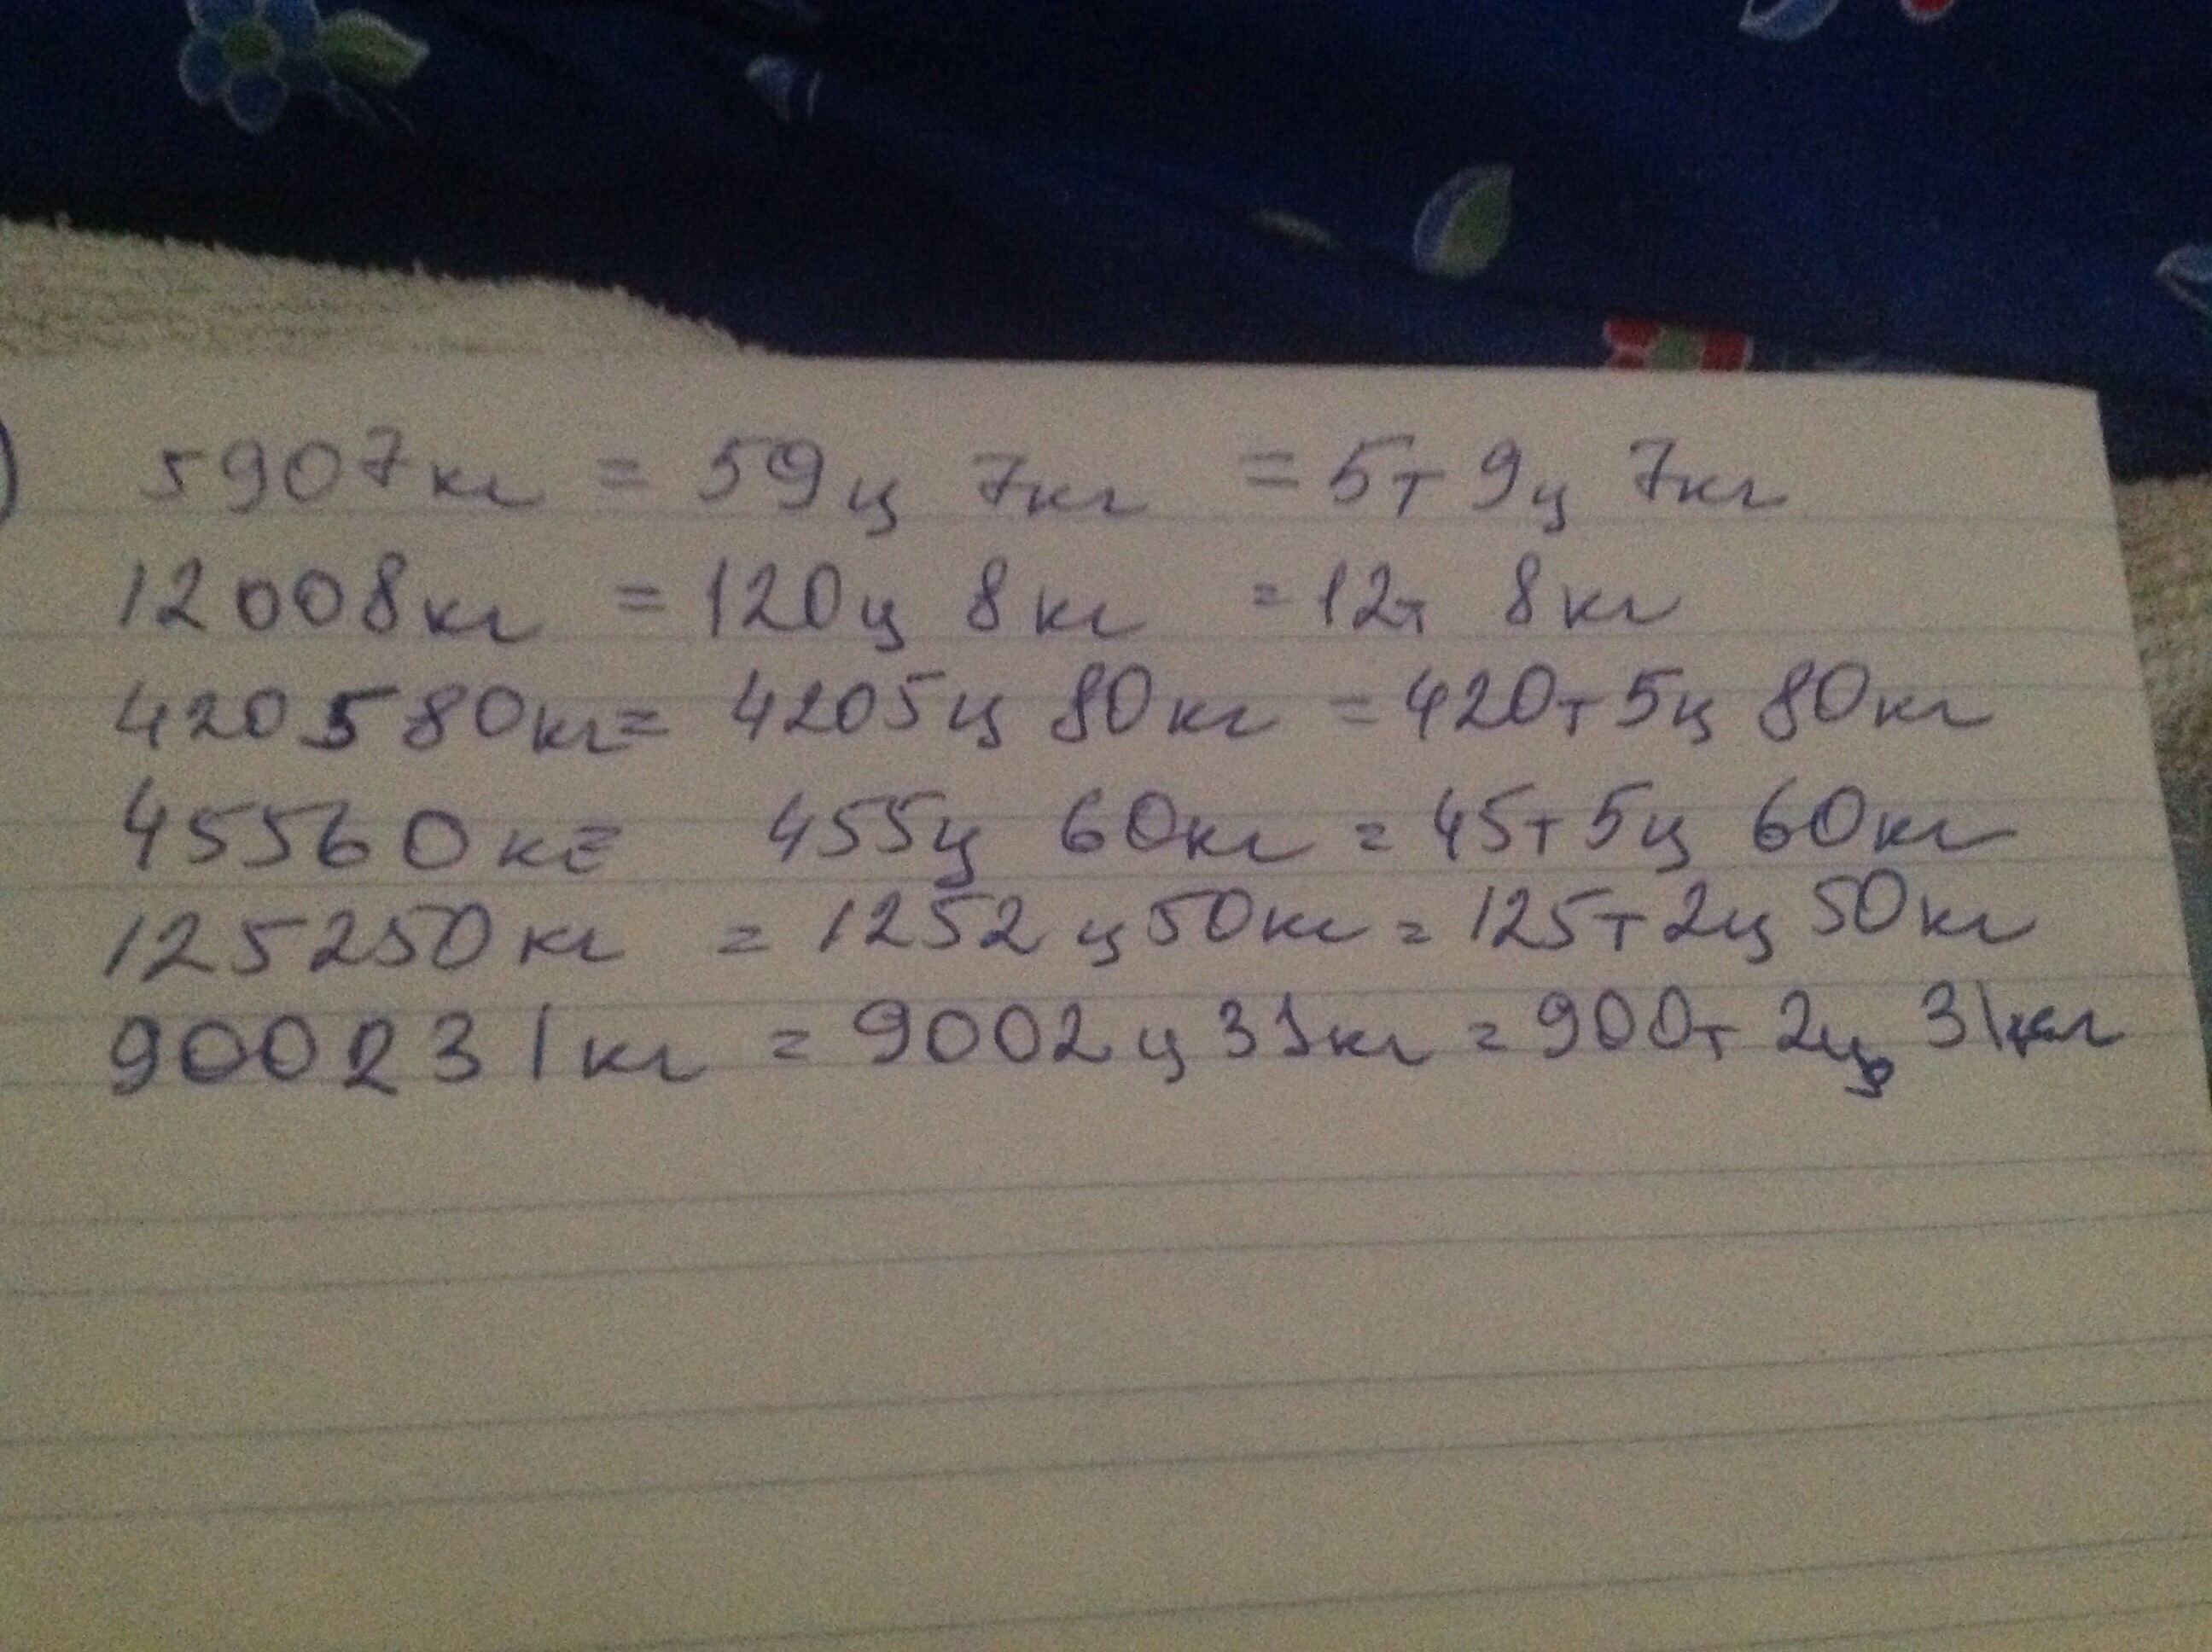 ) 5907кг = 59ц 7кг = 5т 9ц 7кг
12008кг = 120ц 8кг = 12т 8кг
420580кг= 4205ц 80кг = 420т 5ц 80кг
45560кг= 455ц 60кг = 45т 5ц 60кг
125250кг = 1252ц 50кг = 125т 2ц 50кг
900231кг = 9002ц 31кг = 900т 2ц 31кг